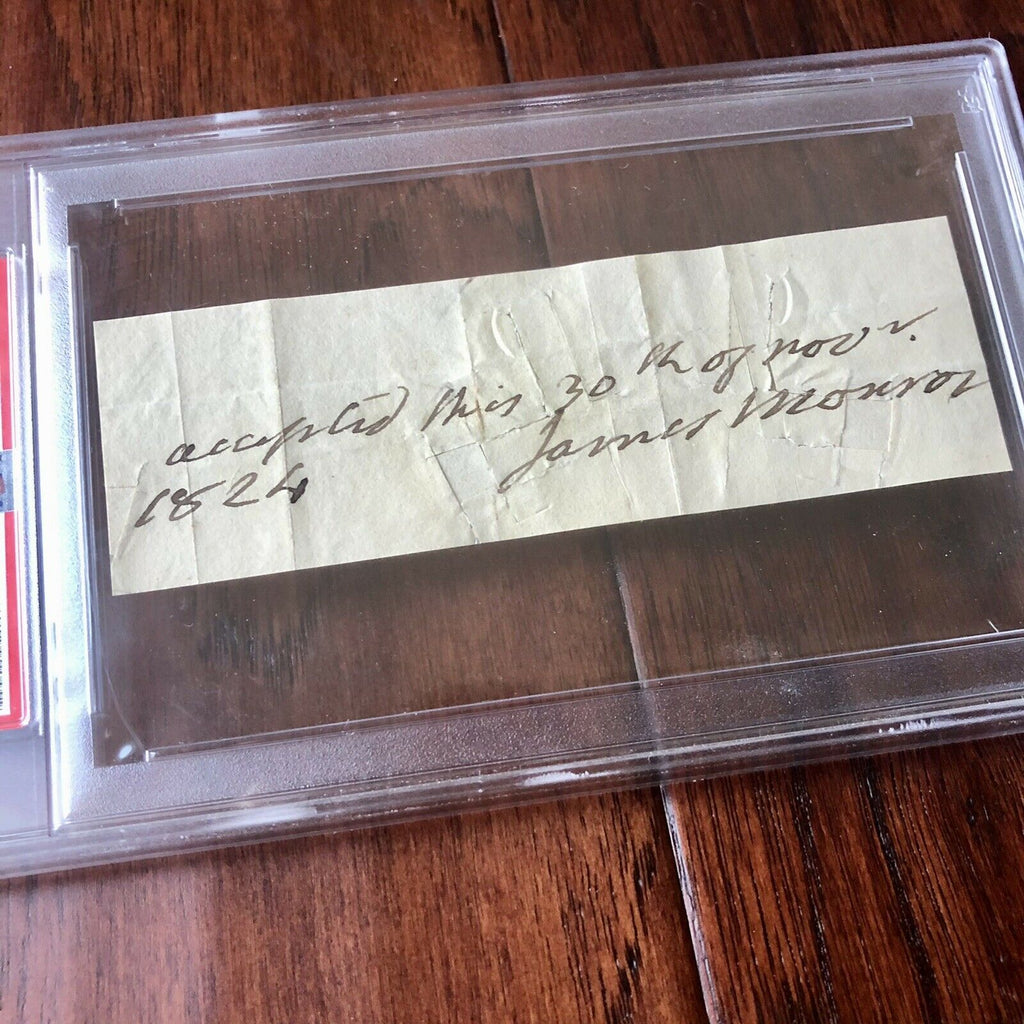 accepted this 30th of novr.
1824 James Monroe